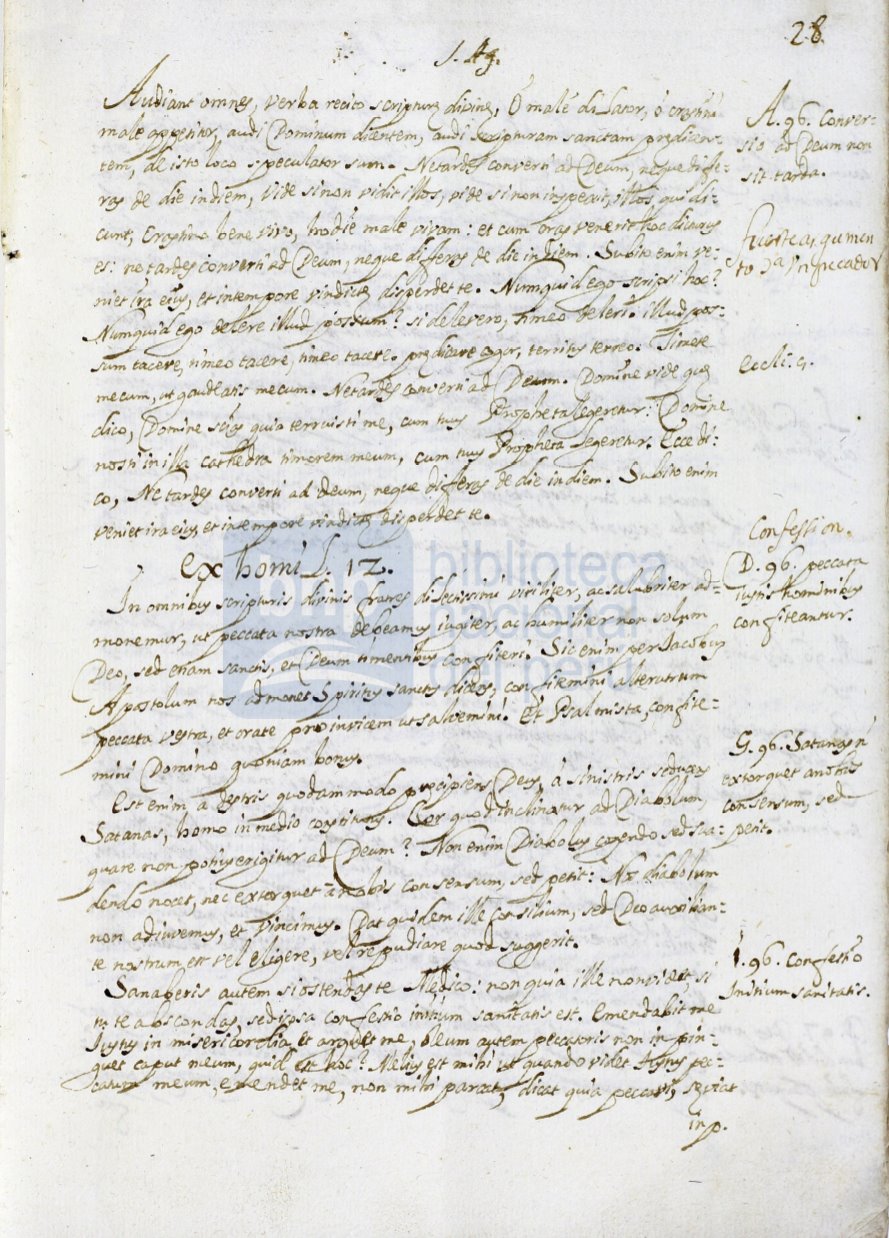 28
S. Aug.
Audiant omnes, verba recito scripturę divinę, O male dilator, ó crastini
male appetitor, audi Dominum dicentem, audi scripturam sanctam prędicen-
tem, de isto loco speculator sum. Ne tardes converti ad Deum, neque diffe-
ras de die in diem, vide si non vidit illos, vide si non inspexit illos, qui di-
cunt, Crastino bene vivo, hodie male vivam: et cum cras venerit hoc dicturus
es: ne tardes converti ad Deum, neque differas de die in diem. Subito enim ve-
niet ira eius, et in tempore vindictę disperdet te. Numquid ego scripsi hoc?
Numquid ego delere illud possum? si delevero, timeo deleri. illud pos-
sum tacere, timeo tacere, timeo tacere. prędicare cogor, territus terreo. Timete
mecum, ut gaudeatis mecum. Ne tardes converti ad Deum. Domine vide quę
dico, Domine scis quia terruisti me, cum tuus Propheta legeretur: Domine
nosti in illa cathedra timorem meum, cum tuus Propheta legeretur. Ecce di-
co, Ne tardes converti ad Deum, neque differas de die in diem. Subito enim
veniet ira eius et in tempore vindictę disperdet te.
ex homil. 12.
In omnibus scripturis divinis fratres dilectissimi utiliter, ac salubriter ad-
monemur, ut peccata nostra debeamus iugiter, ac humiliter non solum
Deo, sed etiam sanctis, et Deum timentibus confiteri. Sic enim per Iacobum
Apostolum nos admonet Spiritus sanctus dicens, confitemini alterutrum
peccata vestra, et orate pro invicem ut salvemini. Et Psalmista, confite-
mini Domino quoniam bonus.
Est enim a dextris quodammodo pręcipiens Deus, á sinistris seducens
Satanas, homo in medio constitutus. Cor quod inclinatur ad Diabolum,
quare non potius erigitur ad Deum? Non enim Diabolus cogendo sed sua-
dendo nocet, nec extorquet á nobis consensum, sed petit: Nos diabolum
non adiuvemus, et vincimus. Dat quidem ille consilium, sed Deo auxilian-
te nostrum est vel eligere, vel repudiare quod suggerit.
Sanaberis autem si ostendas te Medico: non quia ille non videt, si
tu te abscondas, sed ipsa confessio initium sanitatis est. Emendabit me
Iustus in misericordia et arguet me, oleum autem peccatoris non inpin-
guet caput meum, quid est hoc? Melius est mihi ut quando videt Iustus pec-
catum meum, emendet me, non mihi parcat, dicat quia peccavi, sęviat
in p.
A. 96. Conver-
sio ad Deum non
sit tarda.
fuerte argumen
to pa un pecador
Eccli. 5.
Confession.
D. 96. peccata
iustis hominibus
confiteantur.
G. 96. Satanas n
extorquet a nobis
consensum, sed
petit.
I. 96. Confessio
Initium sanitatis.
biblioteca
nacional
del perú